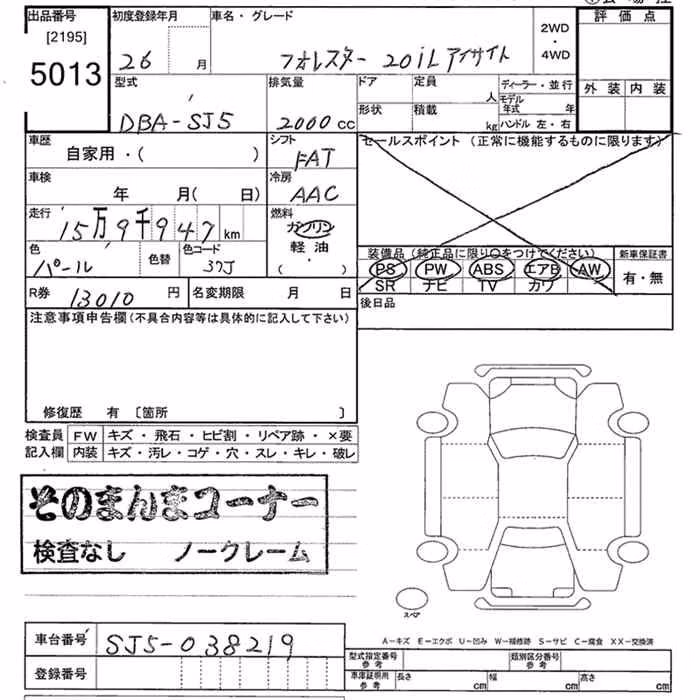 出品番号 初度登録年月 車名・グレード 評価点
[2195]
5013 26 月 フォレスター 20iL アイサイト 2WD・4WD
外装 内装
型式 排気量 ドア 定員 人 ディーラー・並行
DBA-SJ5 2000 cc 形状 積載 kg モデル年式 年 ハンドル 左・右
車歴 シフト セールスポイント (正常に機能するものに限ります)
自家用・( ) FAT
車検 冷房
年 月( 日) AAC
走行 燃料
15万9千947 km ガソリン
色 色替 色コード 軽油 装備品(純正品に限り○をつけてください) 新車保証書
パール 37J ( ) PS PW ABS エアB AW 有・無
SR ナビ TV カワ
R券 13010 円 名変期限 月 日 後日品
注意事項申告欄(不具合内容等は具体的に記入して下さい)
修復歴 有 〔箇所 〕
検査員 FW キズ・飛石・ヒビ割・リペア跡・×要
記入欄 内装 キズ・汚レ・コゲ・穴・スレ・キレ・破レ
そのまんまコーナー
検査なし ノークレーム
スペア
A-キズ E-エクボ U-凹み W-補修跡 S-サビ C-腐食 XX-交換済
車台番号 SJ5-038219 型式指定番号 参考 類別区分番号 参考
登録番号 車庫証明用 参考 長さ cm 幅 cm 高さ cm